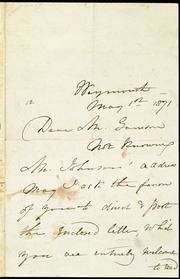 Weymouth
May 1st 1871
Dear Mr. Garrison
Not knowing
Mr. Johnson's address
May I ask the favor
of you to direct & post
the enclosed letter which
you are entirely welcome
to read